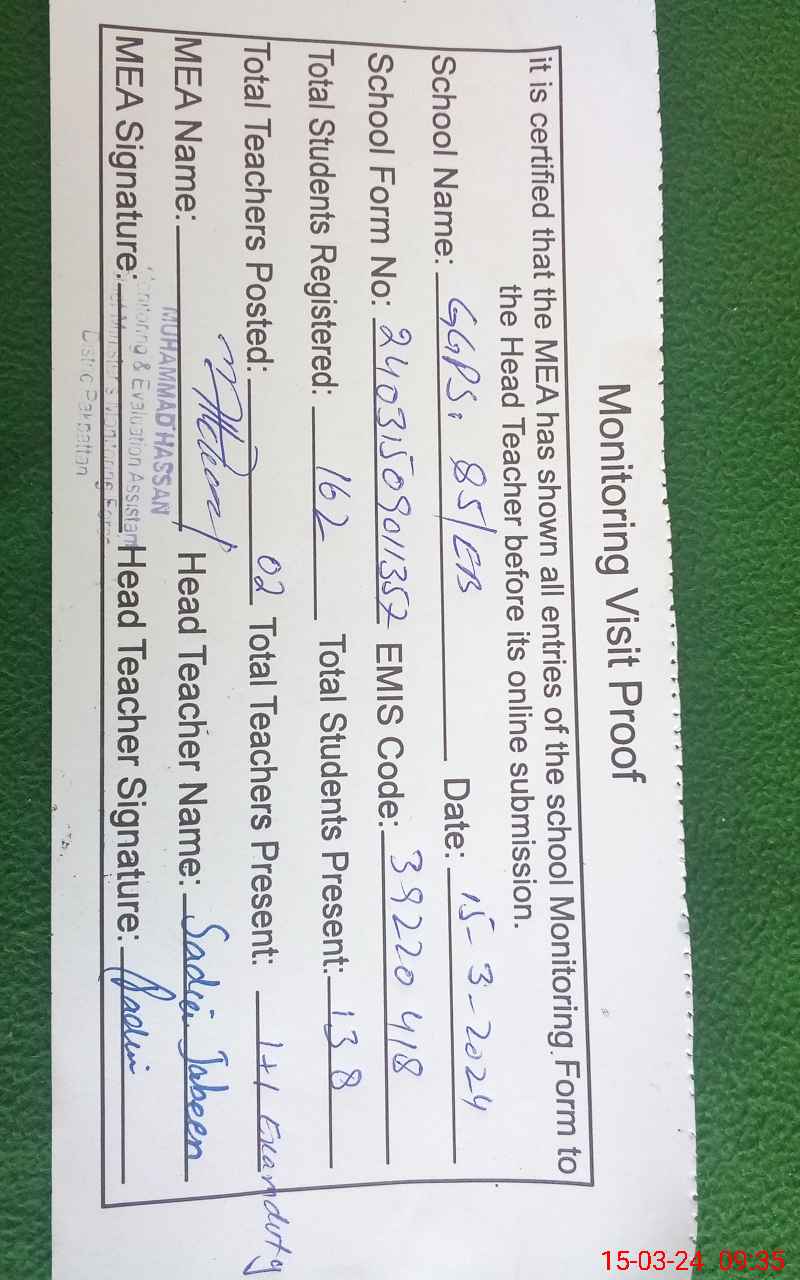 Monitoring Visit Proof
it is certified that the MEA has shown all entries of the school Monitoring Form to
the Head Teacher before its online submission.
School Name: GGPS. 85/EB Date: 15-3-2024
School Form No: 24031509011357 EMIS Code: 39220418
Total Students Registered: 162 Total Students Present: 138
Total Teachers Posted: 02 Total Teachers Present: 1+1 Exam duty
MEA Name: Head Teacher Name: Sadia Jabeen
MUHAMMAD HASSAN
Monitoring & Evaluation Assistant
MEA Signature: Head Teacher Signature: Sadia
Chief Minister's Monitoring Force
District Pakpattan
15-03-24 09:35